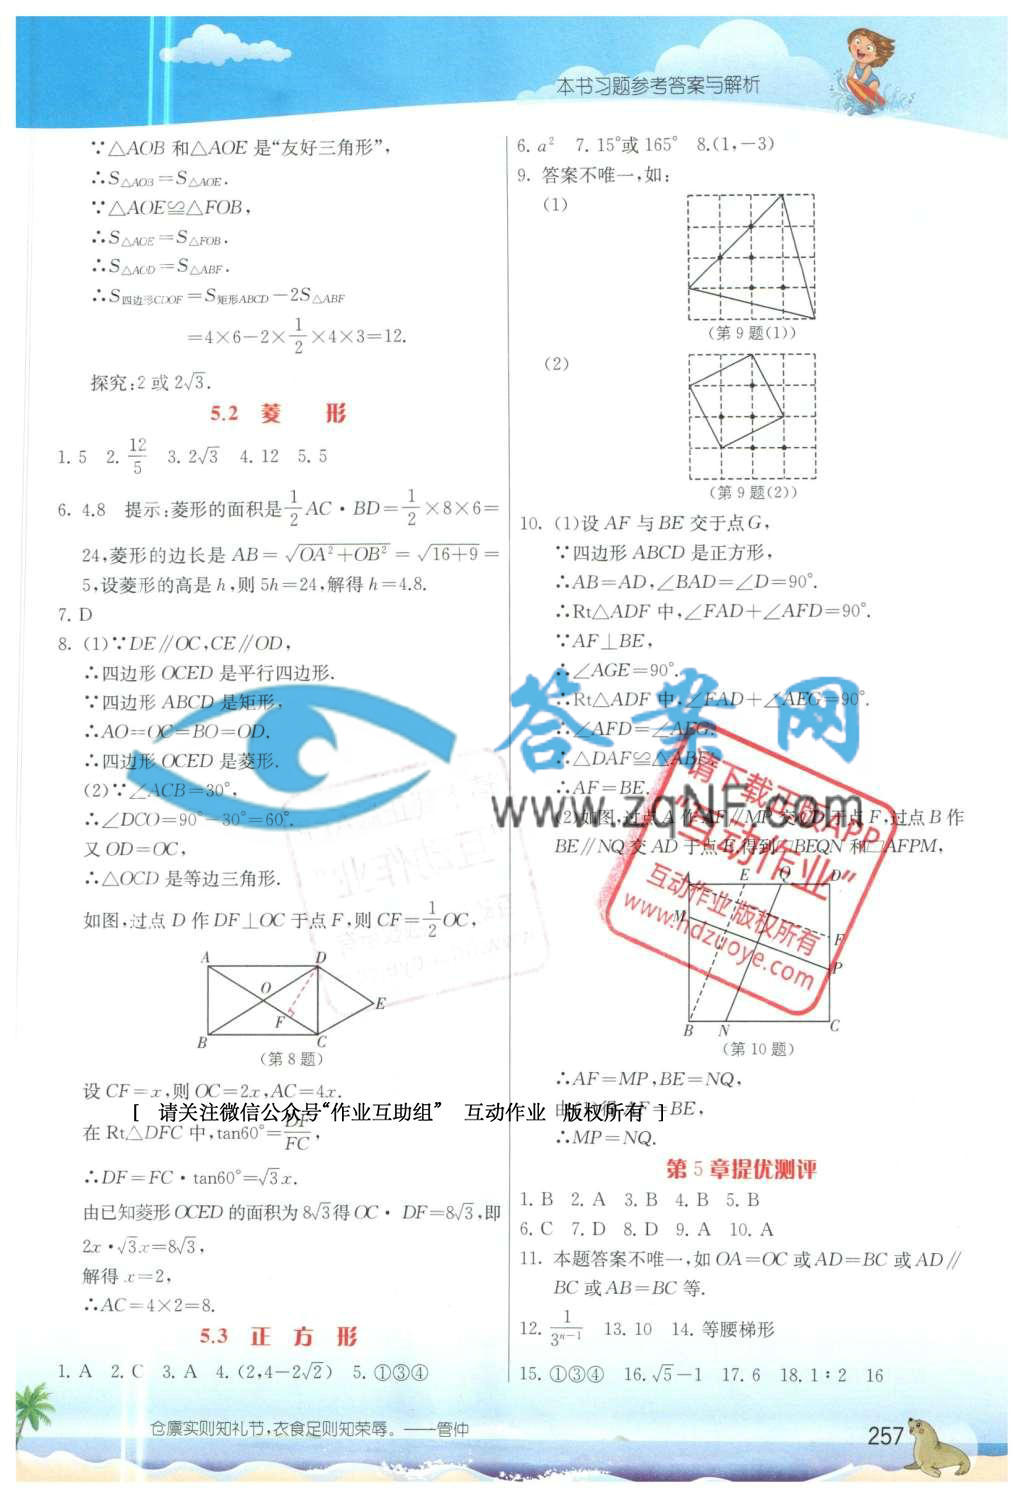 本书习题参考答案与解析
∵△AOB 和△AOE 是“友好三角形”,
∴S△AOB=S△AOE.
∵△AOE≌△FOB,
∴S△AOE=S△FOB.
∴S△AOD=S△ABF.
∴S四边形CDOF=S矩形ABCD-2S△ABF
=4×6-2×1/2×4×3=12.
探究:2 或 2√3.
5.2 菱 形
1. 5 2. 12/5 3. 2√3 4. 12 5. 5
6. 4.8 提示:菱形的面积是1/2 AC·BD=1/2×8×6=
24,菱形的边长是 AB=√(OA²+OB²)=√(16+9)=
5,设菱形的高是 h,则 5h=24,解得 h=4.8.
7. D
8. (1)∵DE∥OC,CE∥OD,
∴四边形 OCED 是平行四边形.
∵四边形 ABCD 是矩形,
∴AO=OC=BO=OD.
∴四边形 OCED 是菱形.
(2)∵∠ACB=30°,
∴∠DCO=90°-30°=60°.
又 OD=OC,
∴△OCD 是等边三角形.
如图,过点 D 作 DF⊥OC 于点 F,则 CF=1/2 OC,
A D
O
E
F
B C
(第 8 题)
设 CF=x,则 OC=2x,AC=4x.
[ 请关注微信公众号“作业互助组” 互动作业 版权所有 ]
在 Rt△DFC 中,tan60°=DF/FC,
∴DF=FC·tan60°=√3x.
由已知菱形 OCED 的面积为 8√3得 OC·DF=8√3,即
2x·√3x=8√3,
解得 x=2,
∴AC=4×2=8.
5.3 正 方 形
1. A 2. C 3. A 4. (2,4-2√2) 5. ①③④
6. a² 7. 15°或 165° 8.(1,-3)
9. 答案不唯一,如:
(1)
(第 9 题(1))
(2)
(第 9 题(2))
10. (1)设 AF 与 BE 交于点 G,
∵四边形 ABCD 是正方形,
∴AB=AD,∠BAD=∠D=90°.
∴Rt△ADF 中,∠FAD+∠AFD=90°.
∵AF⊥BE,
∴∠AGE=90°.
∴Rt△ADF 中,∠FAD+∠AEG=90°.
∴∠AFD=∠AEG.
∴△DAF≌△ABE.
∴AF=BE.
(2)如图,过点 A 作 AF∥MP 交 CD 于点 F,过点 B 作
BE∥NQ 交 AD 于点 E,得到▱BEQN 和▱AFPM,
A E Q D
M
F
P
B N C
(第 10 题)
∴AF=MP,BE=NQ,
由(1)得 AF=BE,
∴MP=NQ.
第 5 章提优测评
1. B 2. A 3. B 4. B 5. B
6. C 7. D 8. D 9. A 10. A
11. 本题答案不唯一,如 OA=OC 或 AD=BC 或 AD∥
BC 或 AB=BC 等.
12. 1/3ⁿ⁻¹ 13. 10 14. 等腰梯形
15. ①③④ 16. √5-1 17. 6 18. 1∶2 16
答案网
www.zqnf.com
请下载正版APP
“互动作业”
互动作业 版权所有
www.hdzuoye.com
仓廪实则知礼节,衣食足则知荣辱。——管仲
257